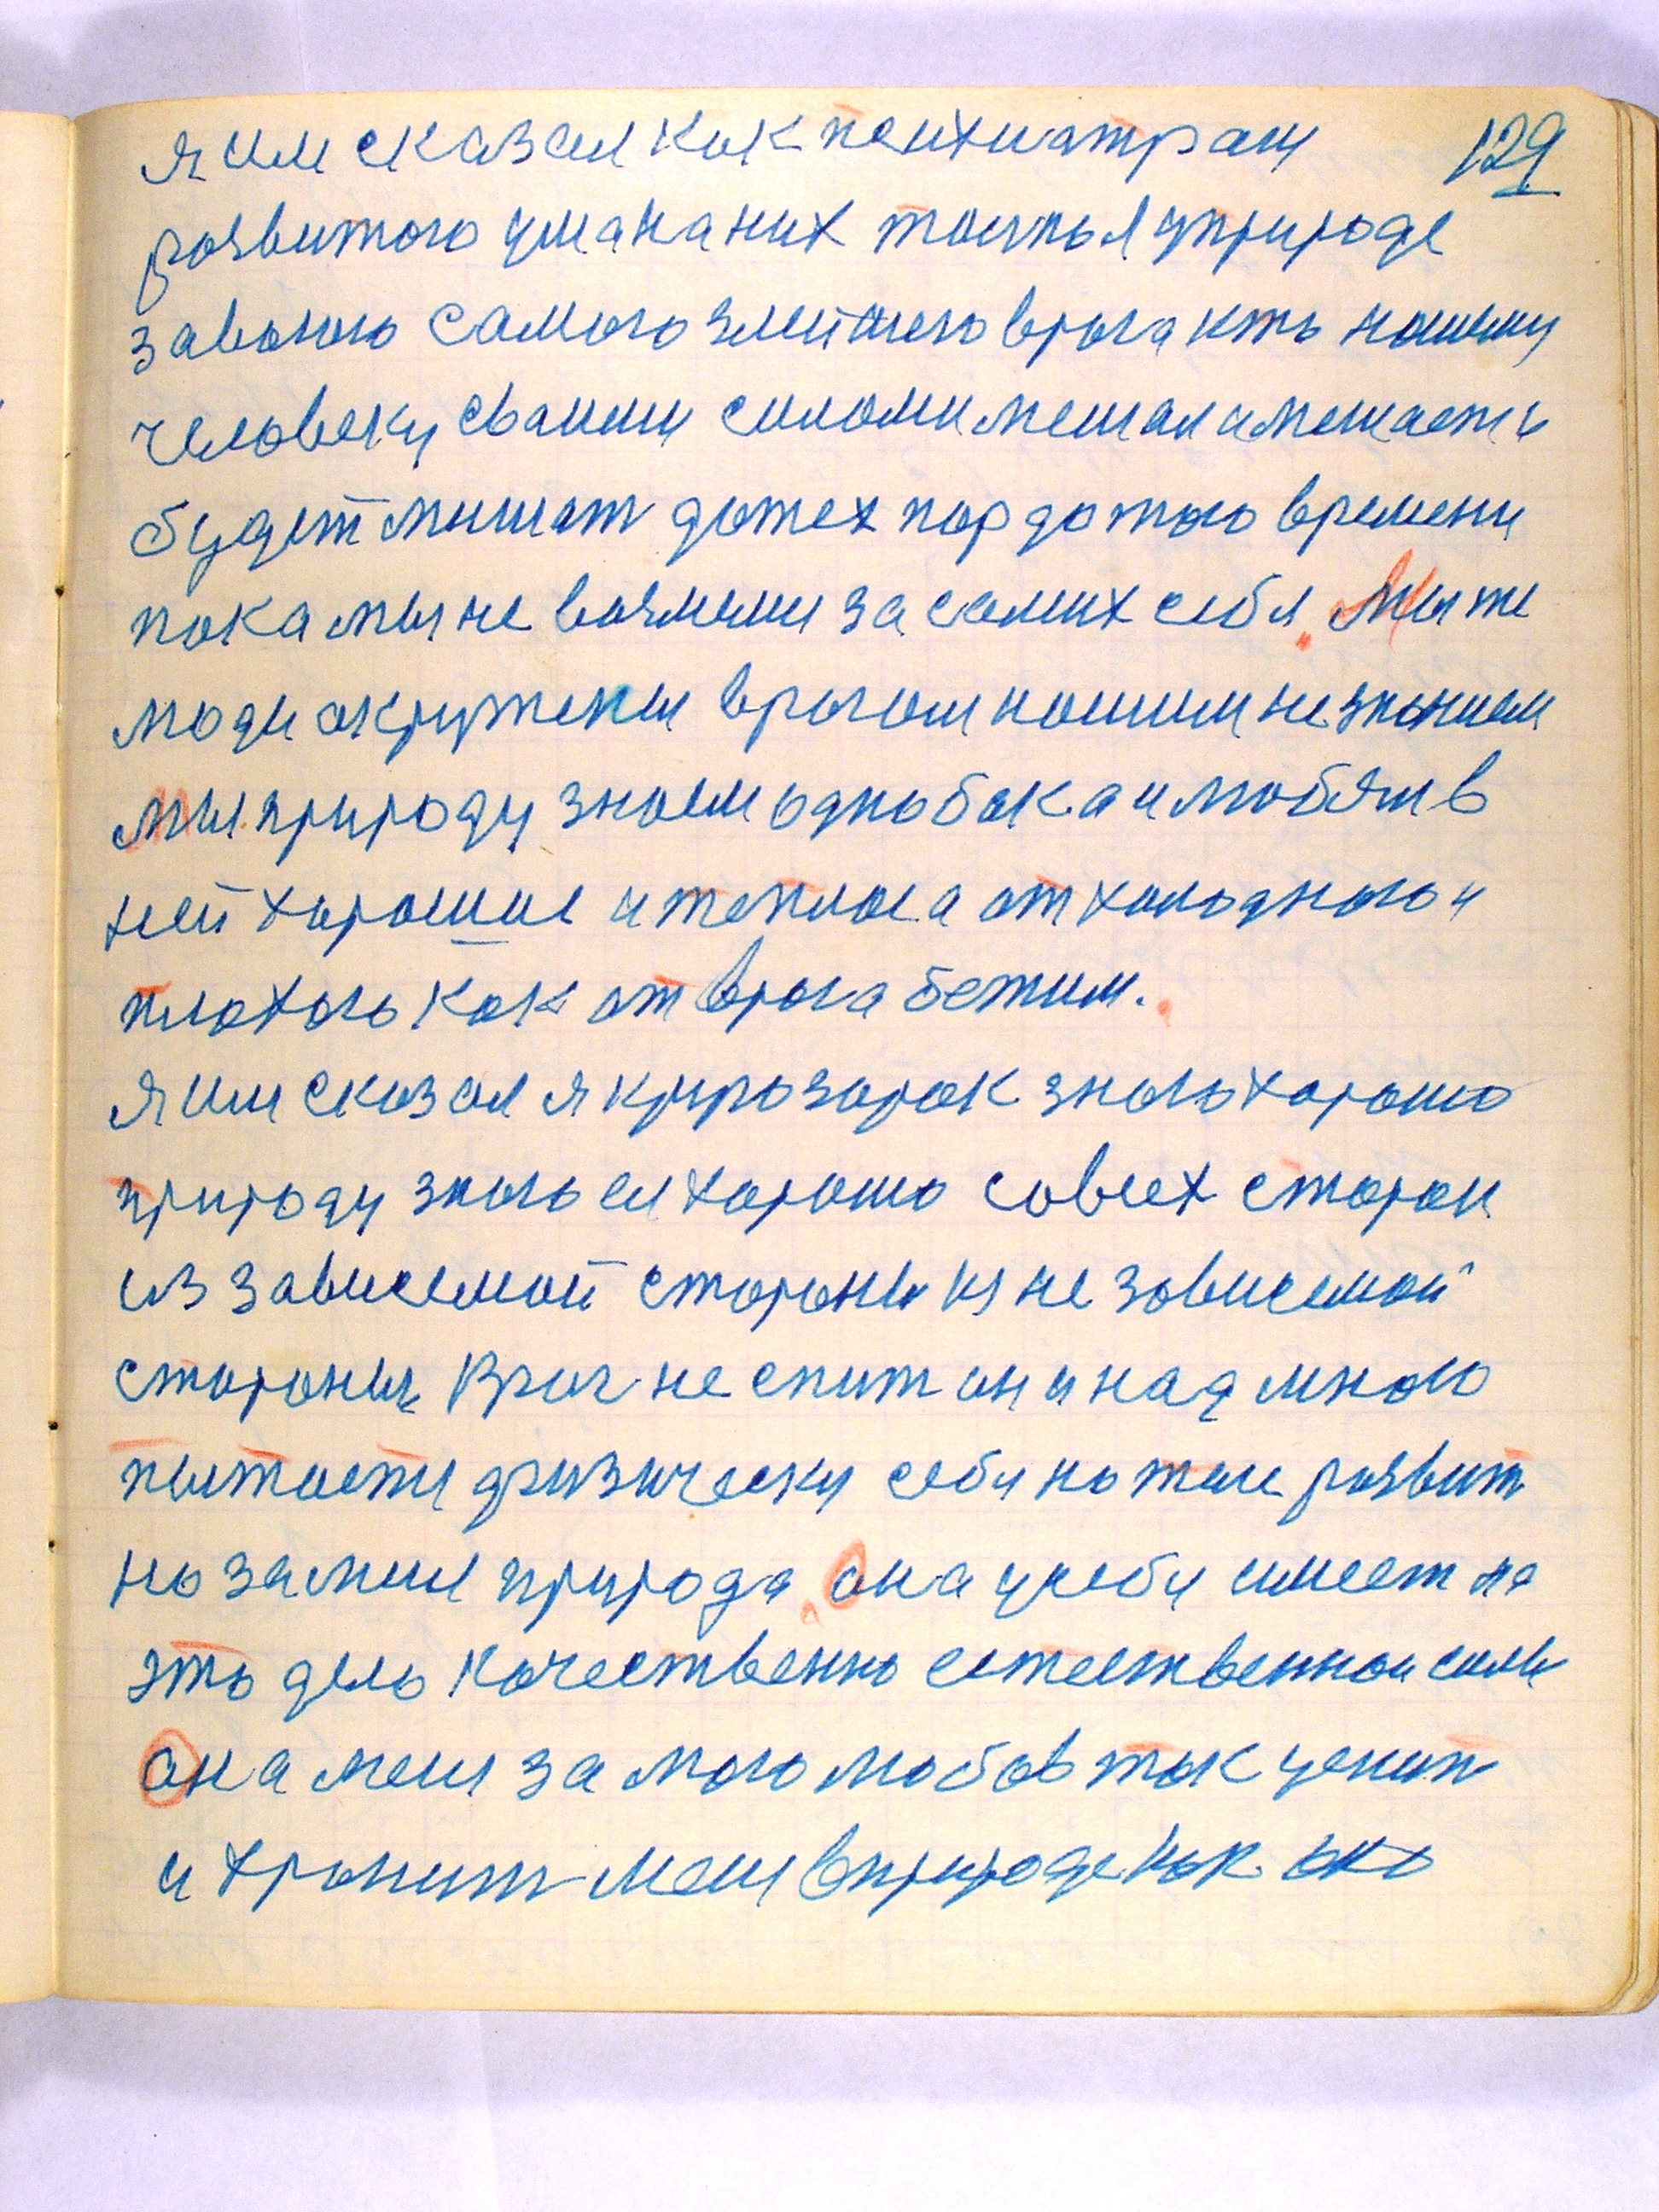 129
я им сказал как психиатрам
розвитого ума на них тольол уприроде
завоюю самого злейшего врага кто нашему
человеку сваими силоми мешал и мешаети
будет мишат дотех пор до того времени
пока мы не возмеми за самих себя. Мы же
люди акружены врагом нашим незнанием
мы природу знаем однобока и любям в
ней хорошие и теплое а от холодного и
плохого как от врага бежим.
Я им сказал я кругозорок знаю хорошо
природу знаю ея хорошо совсех сторон
из зависемой стороны из не зависемой
стороны. Враг не спит он и надмною
пытаети физически себя на теле розвит
но замия природа, она усебя имеет на
это дело качествено естественной силы
она меня за мою любов так ценит
и хранит меня вприроде как око